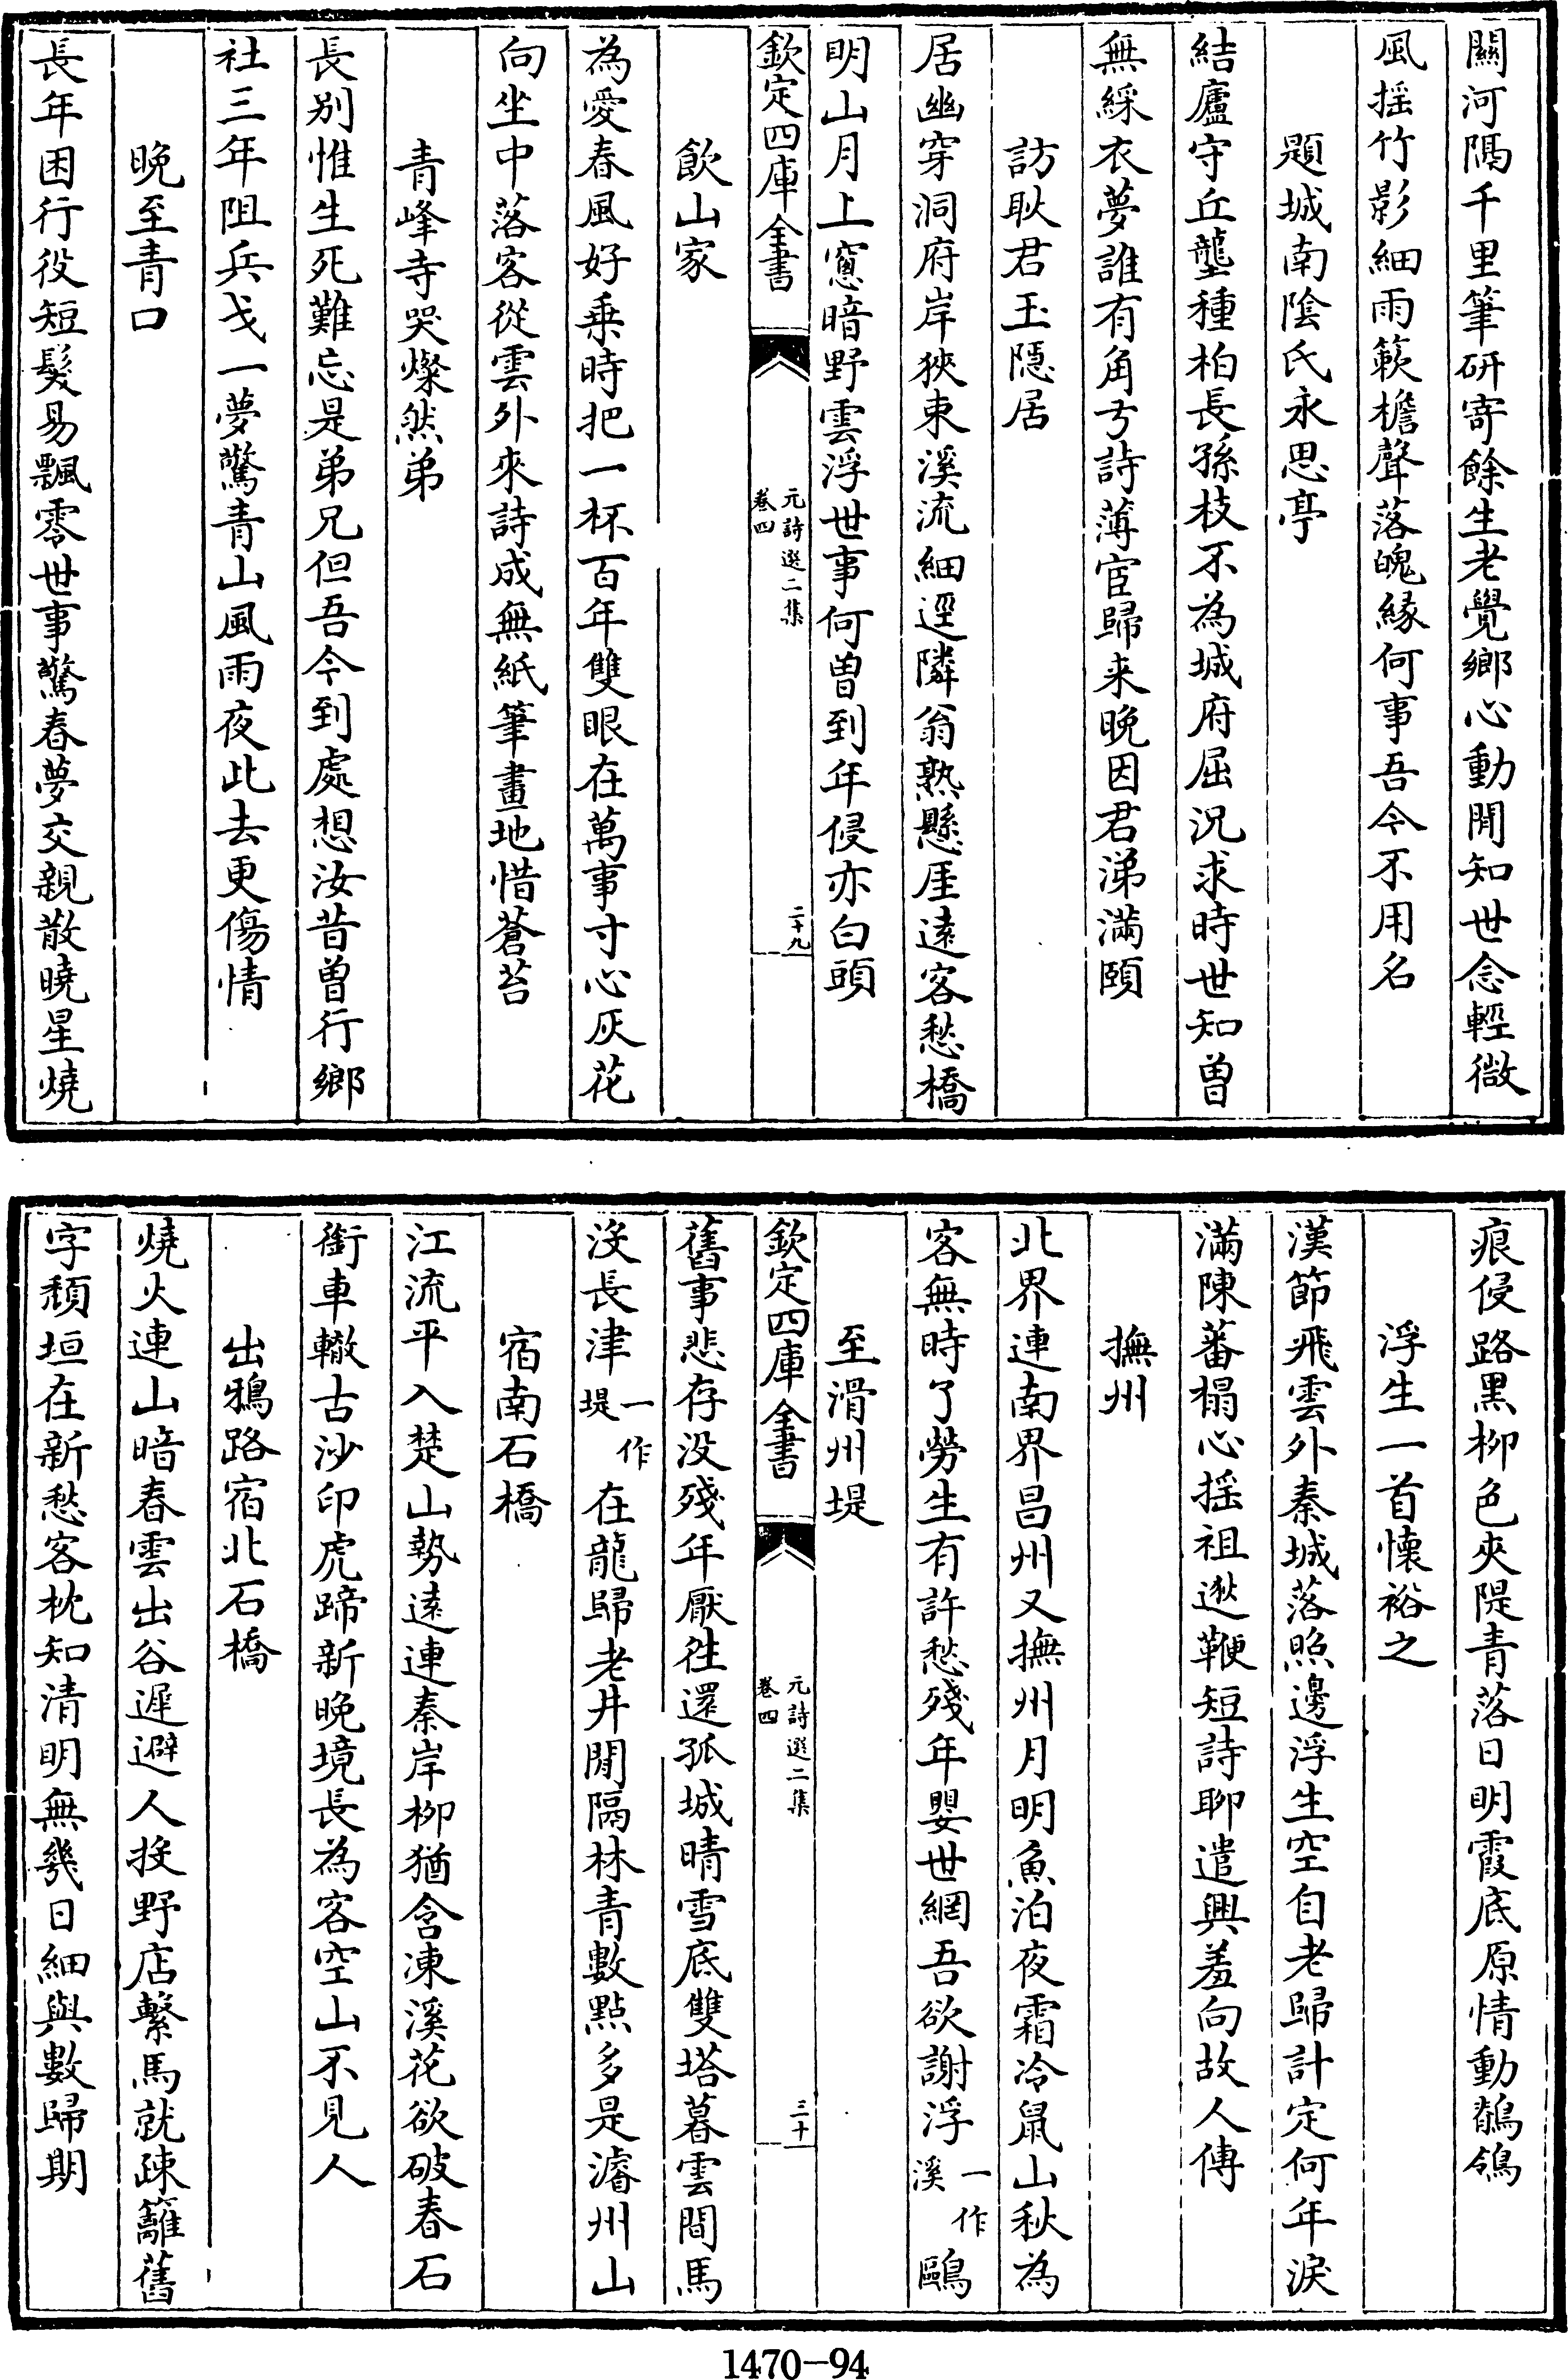 關河隔千里筆研寄餘生老覺鄉心動閒知世念輕微
風揺竹影細雨簌檐聲落魄緣何事吾今不用名
題城南陰氏永思亭
結廬守丘壟種柏長孫枝不為城府屈況求時世知曾
無綵衣夢誰有角弓詩薄宦歸来晚因君涕滿頤
訪耿君玉隱居
居幽穿洞府岸狹束溪流細逕隣翁熟懸厓遠客愁橋
明山月上窻暗野雲浮世事何曾到年侵亦白頭
欽定四庫全書
元詩選二集
卷四
二十九
飲山家
為愛春風好乗時把一杯百年雙眼在萬事寸心灰花
向坐中落客從雲外來詩成無紙筆畫地惜蒼苔
青峰寺哭燦然弟
長別惟生死難忘是弟兄但吾今到處想汝昔曾行鄉
社三年阻兵戈一夢驚青山風雨夜此去更傷情
晚至青口
長年困行役短髮易飄零世事驚春夢交親散曉星燒
痕侵路黒柳色夾隄青落日明霞底原情動鶺鴒
浮生一首懐裕之
漢節飛雲外秦城落照邊浮生空自老歸計定何年淚
滿陳蕃榻心揺祖逖鞭短詩聊遣興羞向故人傳
撫州
北界連南界昌州又撫州月明魚泊夜霜冷鼠山秋為
客無時了勞生有許愁殘年嬰世網吾欲謝浮一作溪鷗
至滑州堤
欽定四庫全書
元詩選二集
卷四
三十
舊事悲存没殘年厭徃還孤城晴雪底雙塔暮雲間馬
沒長津一作堤在龍歸老井閒隔林青數點多是濬州山
宿南石橋
江流平入楚山勢遠連秦岸柳猶含凍溪花欲破春石
銜車轍古沙印虎蹄新晚境長為客空山不見人
出鵶路宿北石橋
燒火連山暗春雲出谷遲避人投野店繫馬就疎籬舊
字頽垣在新愁客枕知清明無幾日細與數歸期
1470-94